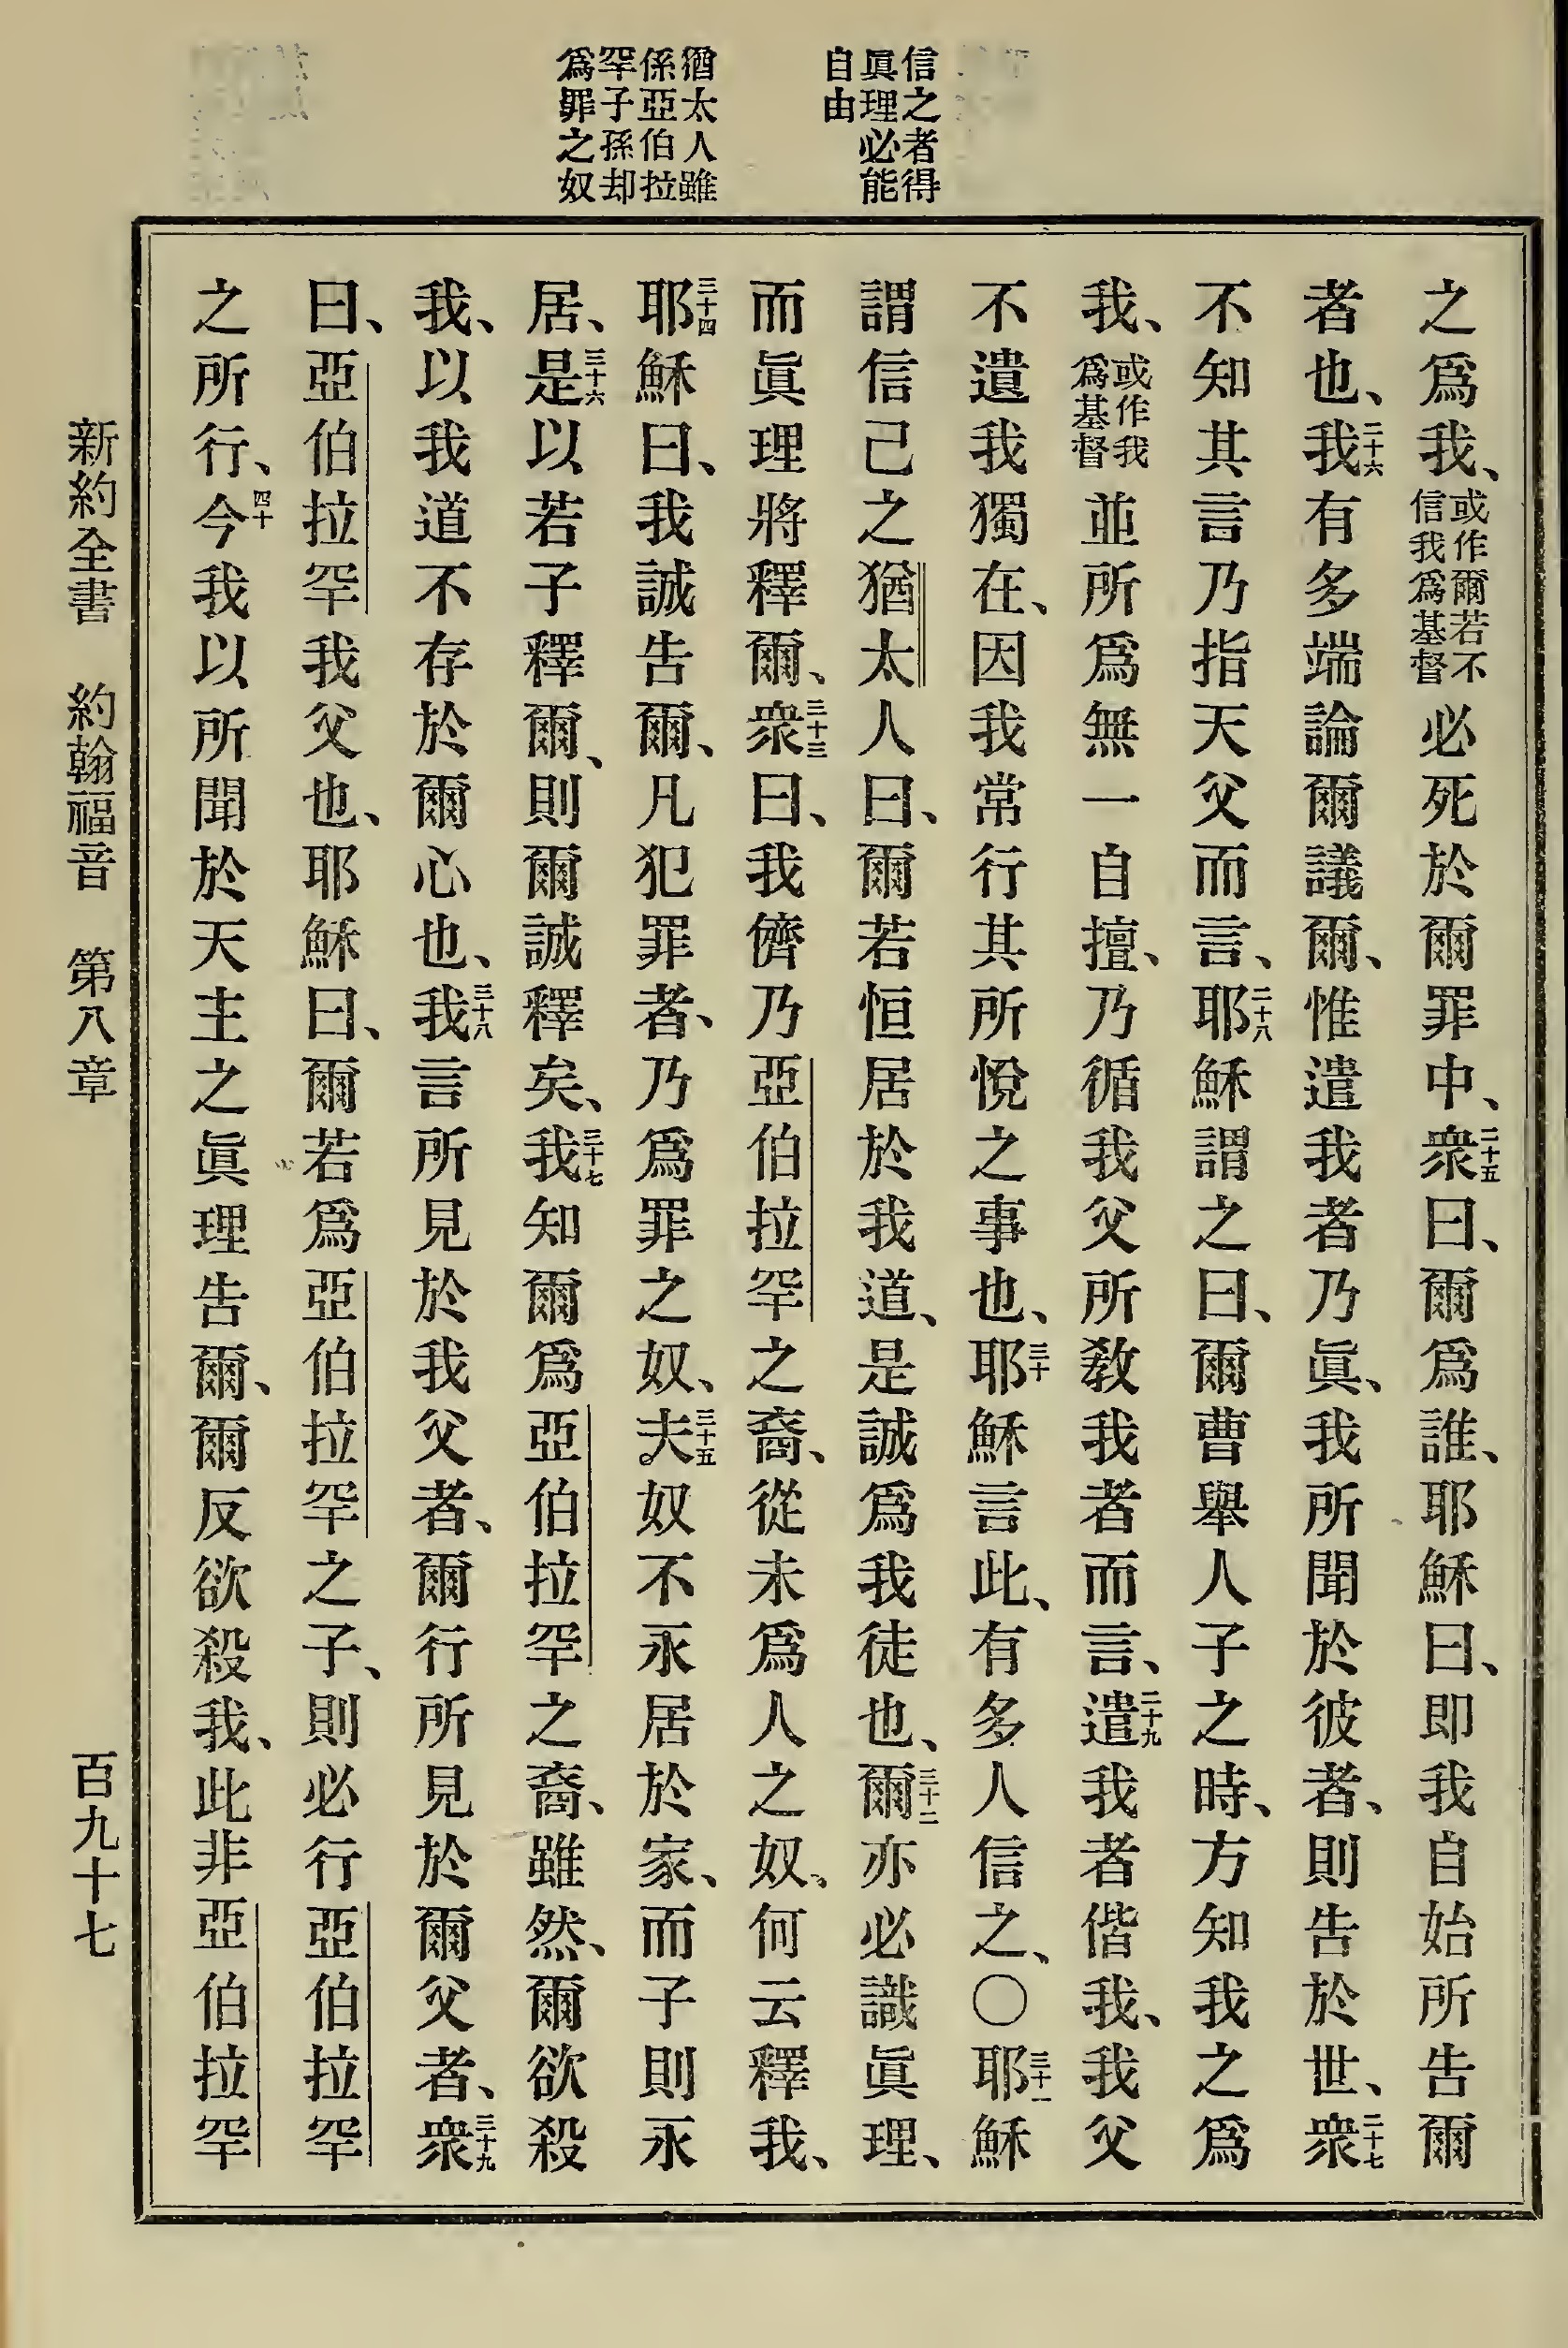 信之者得
眞理必能
自由
猶太人雖
係亞伯拉
罕子孫却
爲罪之奴
之爲我、或作爾若不信我爲基督必死於爾罪中、二十五衆曰、爾爲誰、耶穌曰、即我自始所告爾
者也、二十六我有多端論爾議爾、惟遣我者乃眞、我所聞於彼者、則告於世、二十七衆
不知其言乃指天父而言、二十八耶穌謂之曰、爾曹舉人子之時、方知我之爲
我、或作我爲基督並所爲無一自擅、乃循我父所敎我者而言、二十九遣我者偕我、我父
不遺我獨在、因我常行其所悅之事也、三十耶穌言此、有多人信之、〇三十一耶穌
謂信己之猶太人曰、爾若恒居於我道、是誠爲我徒也、三十二爾亦必識眞理、
而眞理將釋爾、三十三衆曰、我儕乃亞伯拉罕之裔、從未爲人之奴、何云釋我、
三十四耶穌曰、我誠告爾、凡犯罪者、乃爲罪之奴、三十五夫奴不永居於家、而子則永
居、三十六是以若子釋爾、則爾誠釋矣、三十七我知爾爲亞伯拉罕之裔、雖然、爾欲殺
我、以我道不存於爾心也、三十八我言所見於我父者、爾行所見於爾父者、三十九衆
曰、亞伯拉罕我父也、耶穌曰、爾若爲亞伯拉罕之子、則必行亞伯拉罕
之所行、四十今我以所聞於天主之眞理告爾、爾反欲殺我、此非亞伯拉罕
新約全書　約翰福音　第八章　百九十七